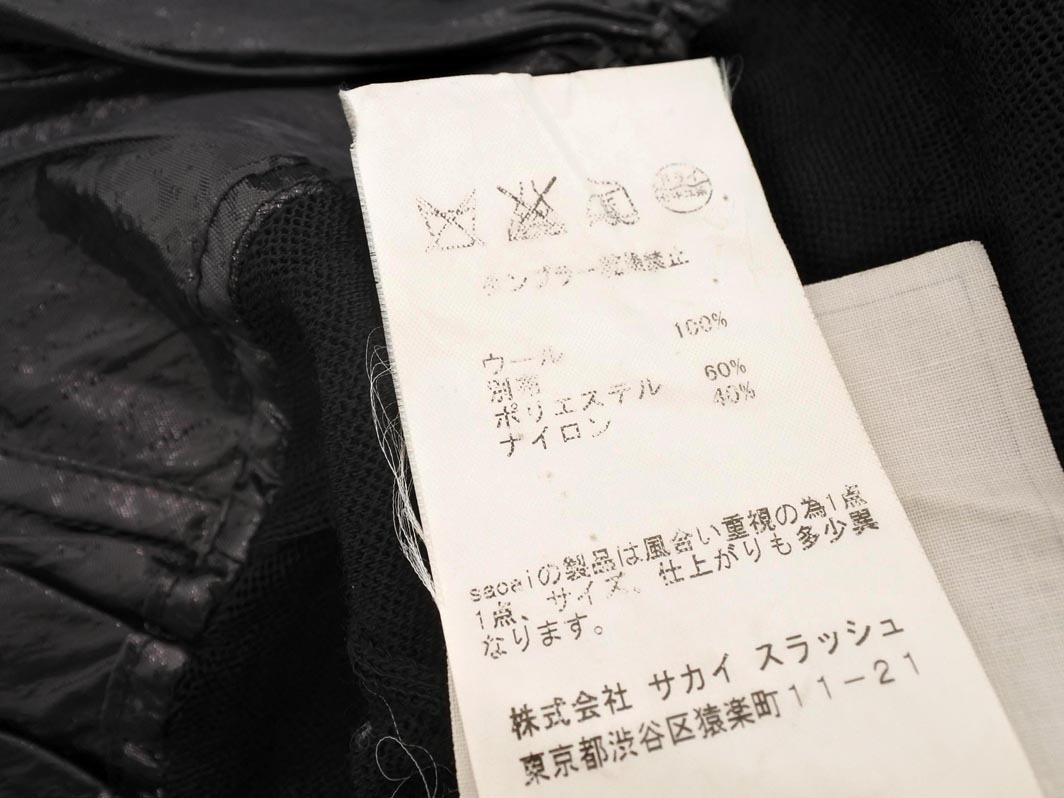 ドライ
タンブラー乾燥禁止
ウール 100%
別布
ポリエステル 60%
ナイロン 40%
sacaiの製品は風合い重視の為1点
1点、サイズ、仕上がりも多少異
なります。
株式会社 サカイ スラッシュ
東京都渋谷区猿楽町11-21